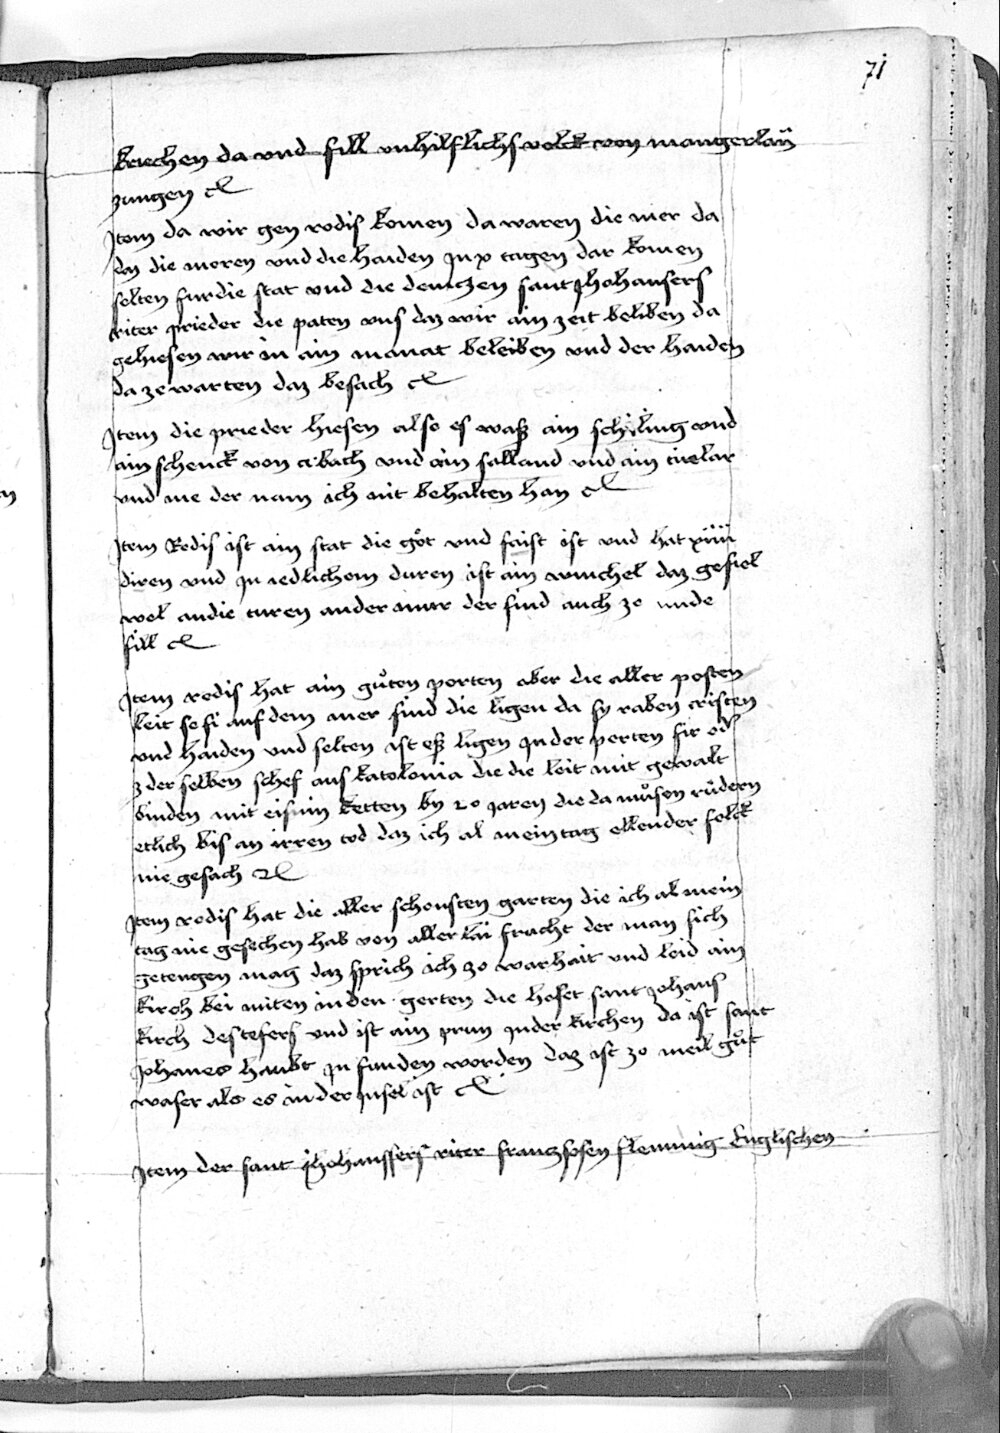 71
kriechen da vnd fill vnhilflichs volck von mangerlaÿ
zungen ⁊c
Jtem da wir gen rodis komen da waren die mer da
daz die moren vnd die haiden jn x tagen dar komen
solten fur die stat vnd die deuczen sant johansers
riter prieder die paten vns daz wir ain zeit beliben da
gehiesen wir in ain manat beleiben vnd der haiden
da ze warten daz besach ⁊c
Jtem die prieder hiesen also es waß ain schiling vnd
ain schenck von bach vnd ain salland vnd ain
vnd me der nam ich nit behalten han ⁊c
Jtem Rodis ist ain stat die gůt vnd faist ist vnd hat xiiii
diren vnd jn iedlichem duren ist ain winchel daz gefiel
wol an die turen an der mur der sind auch zo
fill ⁊c
Jtem rodis hat ain gůten porten aber die aller posten
leit so si auf dem mer sind die ligen da sy raben cristen
vnd haiden vnd selten ist eß ligen jn der porten fir od
z der selben schef aus katolonia die die leit mit gewalt
binden mit eisnin ketten by 20 jaren die da můsen růdern
etlich bis an irren tod daz ich al mein tag ellender folck
nie gesach ⁊c
Jtem rodis hat die aller schonsten garten die ich al mein
tag nie gesechen hab von allerlai fracht der man sich
getengen mag daz sprich ich zo warhait vnd leid ain
kirch bei miten in den gerten die hofet sant johans
kirch destefers vnd ist ain prun jn der kirchen da ist sant
johanes haubt jn funden worden daz ist zo meil gůt
waser als es in der jnsel ist ⁊c
Jtem der sant jhohanssers riter franczosen flemmig Englischen